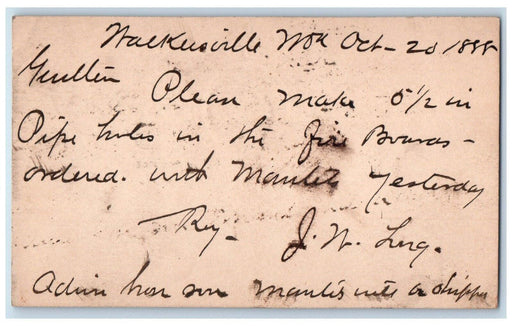 Walkersville Md Oct - 20 1888
Gentlm
Please make 5 1/2 in
Pipe holes in the fire Boards -
ordered. with Mantels yesterday
Rey - J. W.
Advise how soon Mantels will be shipped